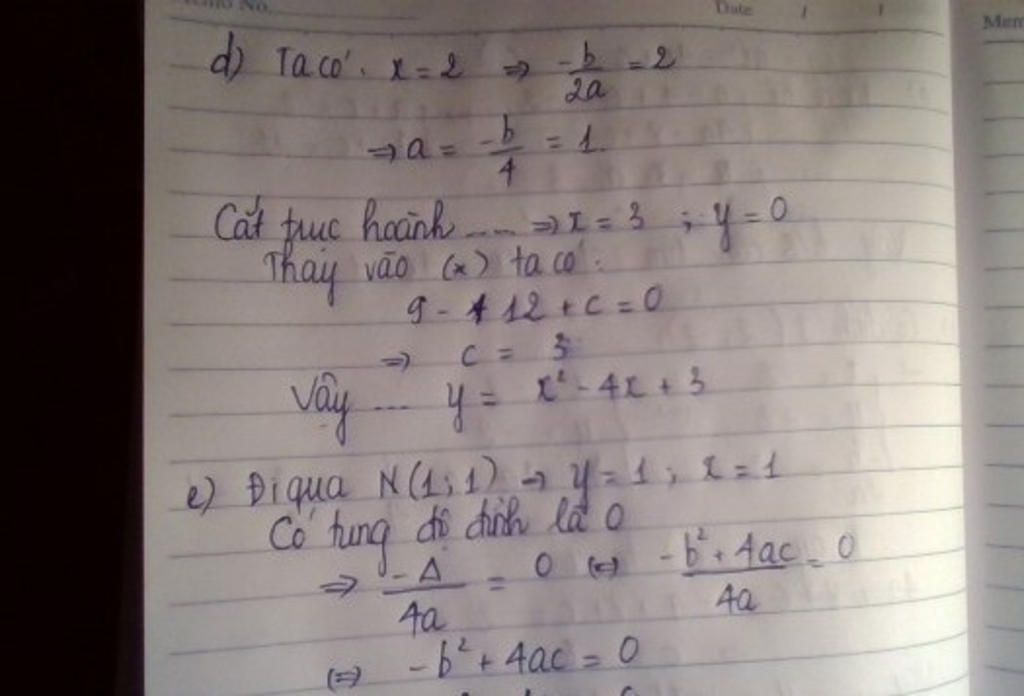 Memo No.
Date / /
Mem
d) Ta có: x = 2 => -b/2a = 2
=> a = -b/4 = 1.
Cắt trục hoành .... => x = 3 ; y = 0
Thay vào (*) ta có:
9 - 12 + c = 0
=> c = 3
Vậy ... y = x² - 4x + 3
e) Đi qua N(1;1) -> y = 1 ; x = 1
Có tung độ đỉnh là 0
=> -Δ/4a = 0 (=) -b² + 4ac/4a = 0
(=) -b² + 4ac = 0